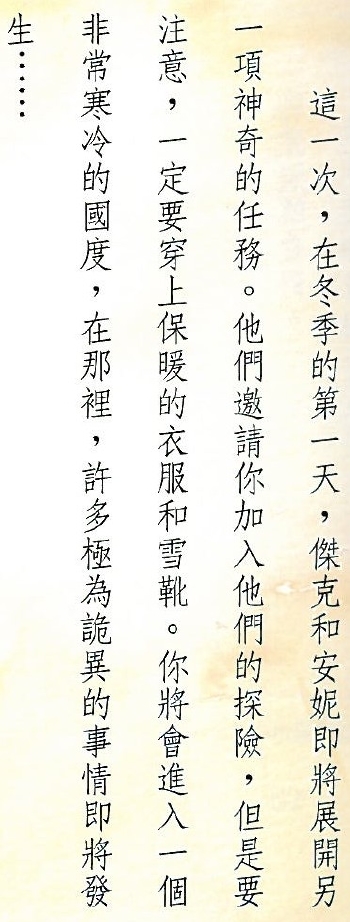 這一次，在冬季的第一天，傑克和安妮即將展開另
一項神奇的任務。他們邀請你加入他們的探險，但是要
注意，一定要穿上保暖的衣服和雪靴。你將會進入一個
非常寒冷的國度，在那裡，許多極為詭異的事情即將發
生……